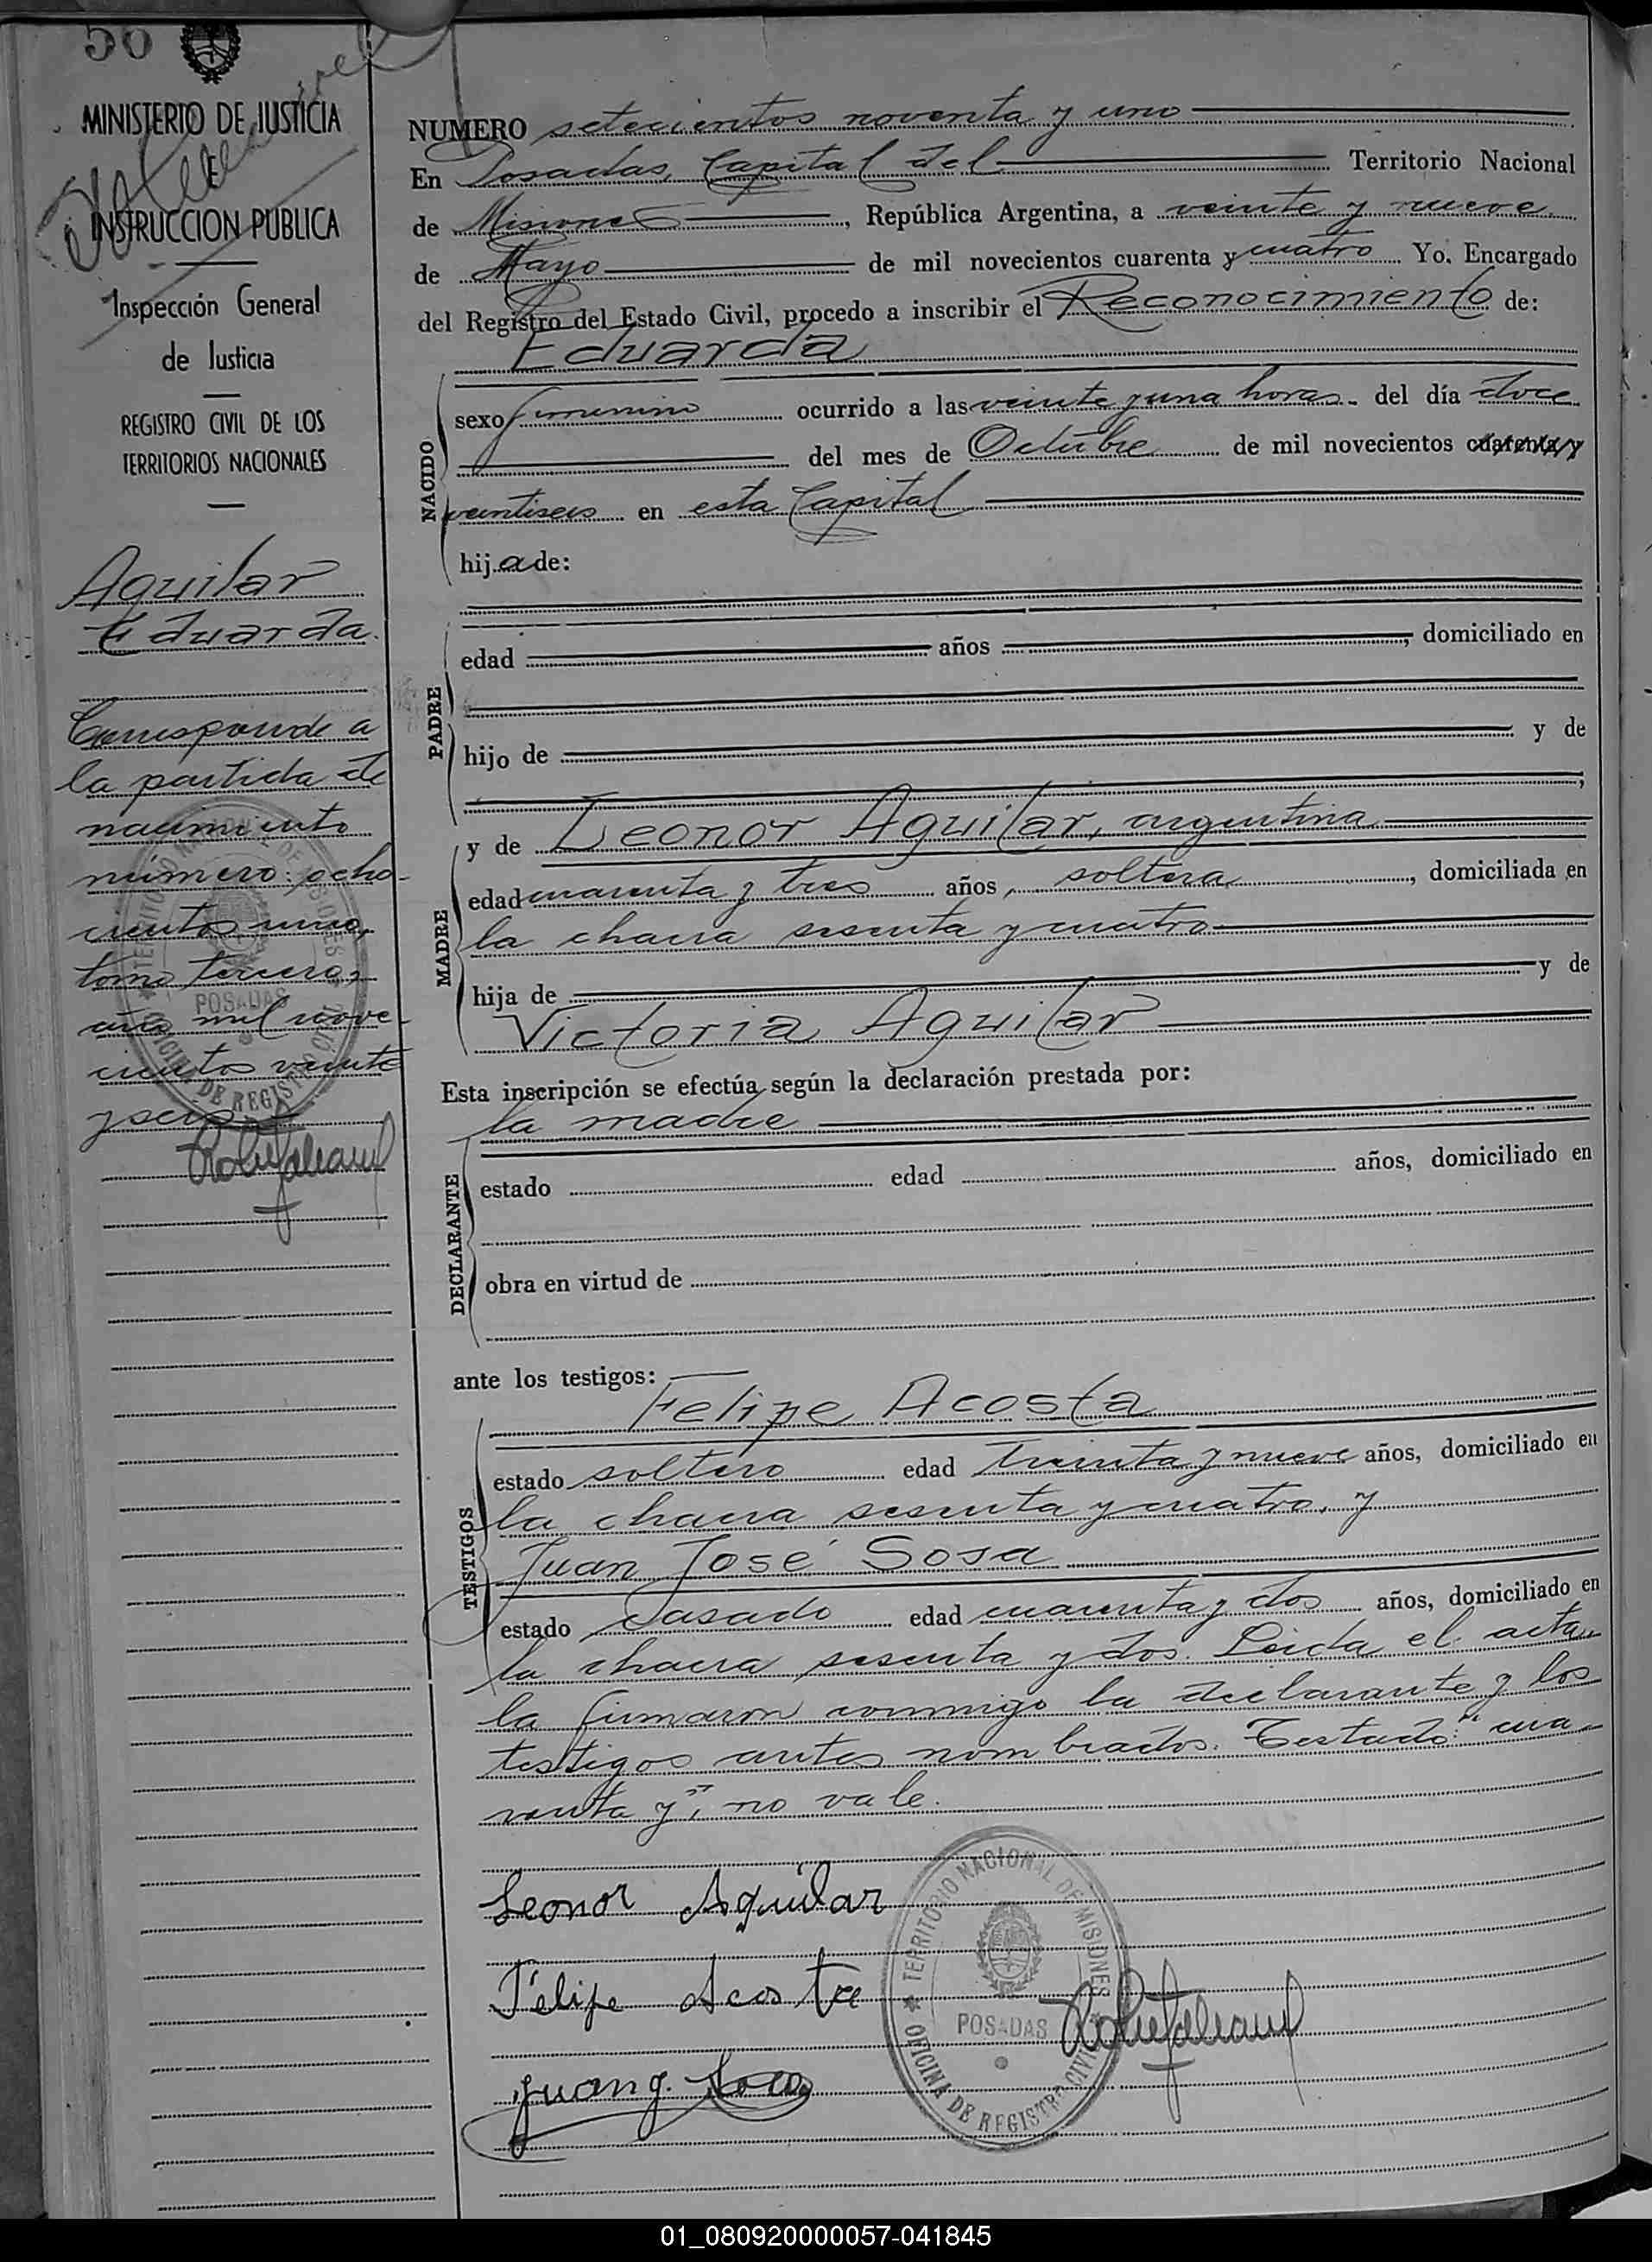 50
MINISTERIO DE JUSTICIA
E
INSTRUCCION PUBLICA
Inspección General
de Justicia
REGISTRO CIVIL DE LOS
TERRITORIOS NACIONALES
Aguilar
Eduarda.
Corresponde a
la partida de
nacimiento
número: ocho-
cientos uno,
tomo tercero,
año mil nove-
cientos veinte
y seis
TERRITORIO NACIONAL DE MISIONES
POSADAS
OFICINA DE REGISTRO CIVIL
NUMERO setecientos noventa y uno
En Posadas, Capital del Territorio Nacional
de Misiones, República Argentina, a veinte y nueve
de Mayo de mil novecientos cuarenta y cuatro Yo. Encargado
del Registro del Estado Civil, procedo a inscribir el Reconocimiento de:
Eduarda
NACIDO
sexo femenino ocurrido a las veinte y una horas del día doce
del mes de Octubre de mil novecientos cuarenta y
veintiseis en esta Capital
hija de:
PADRE
edad años, domiciliado en
hijo de y de
MADRE
y de Leonor Aguilar, argentina
edad cuarenta y tres años, soltera, domiciliada en
la chacra sesenta y cuatro
hija de y de
Victoria Aguilar
Esta inscripción se efectúa según la declaración prestada por:
la madre
DECLARANTE
estado edad años, domiciliado en
obra en virtud de
ante los testigos:
Felipe Acosta
TESTIGOS
estado soltero edad treinta y nueve años, domiciliado en
la chacra sesenta y cuatro, y
Juan José Sosa
estado casado edad cuarenta y dos años, domiciliado en
la chacra sesenta y dos. Leida el acta
la firmaron conmigo la declarante y los
testigos antes nombrados. Testado: "cua-
renta y", no vale.
Leonor Aguilar
Felipe Acosta
Juan J. Sosa
TERRITORIO NACIONAL DE MISIONES
POSADAS
OFICINA DE REGISTRO CIVIL
01_080920000057-041845